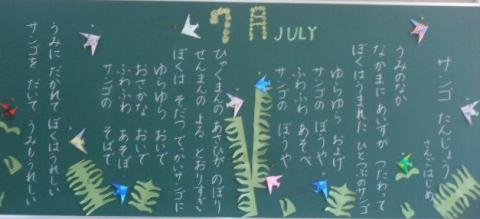 7月 JULY
サンゴ たんじょう
さんごはじめ
うみのなか
なかまに あいずが つたわって
ぼくはうまれた ひとつぶのサンゴ
ゆらゆら おどけ
サンゴの ぼうや
ふわふわ あそべ
サンゴの ぼうや
ひゃくまんの あさひが のぼり
せんまんの よる とおりすぎ
ぼくは そだつ でっかいサンゴに
ゆらゆら おいで
おさかな おいで
ふわふわ あそぼ
サンゴの そばで
うみに だかれて ぼくはうれしい
サンゴを だいて うみもうれしい